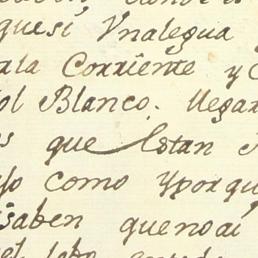 quesi Vnalegua
rla Corriente y C
ol Blanco. llegar
s que Estan
yo como yporqu
isaben quenoai